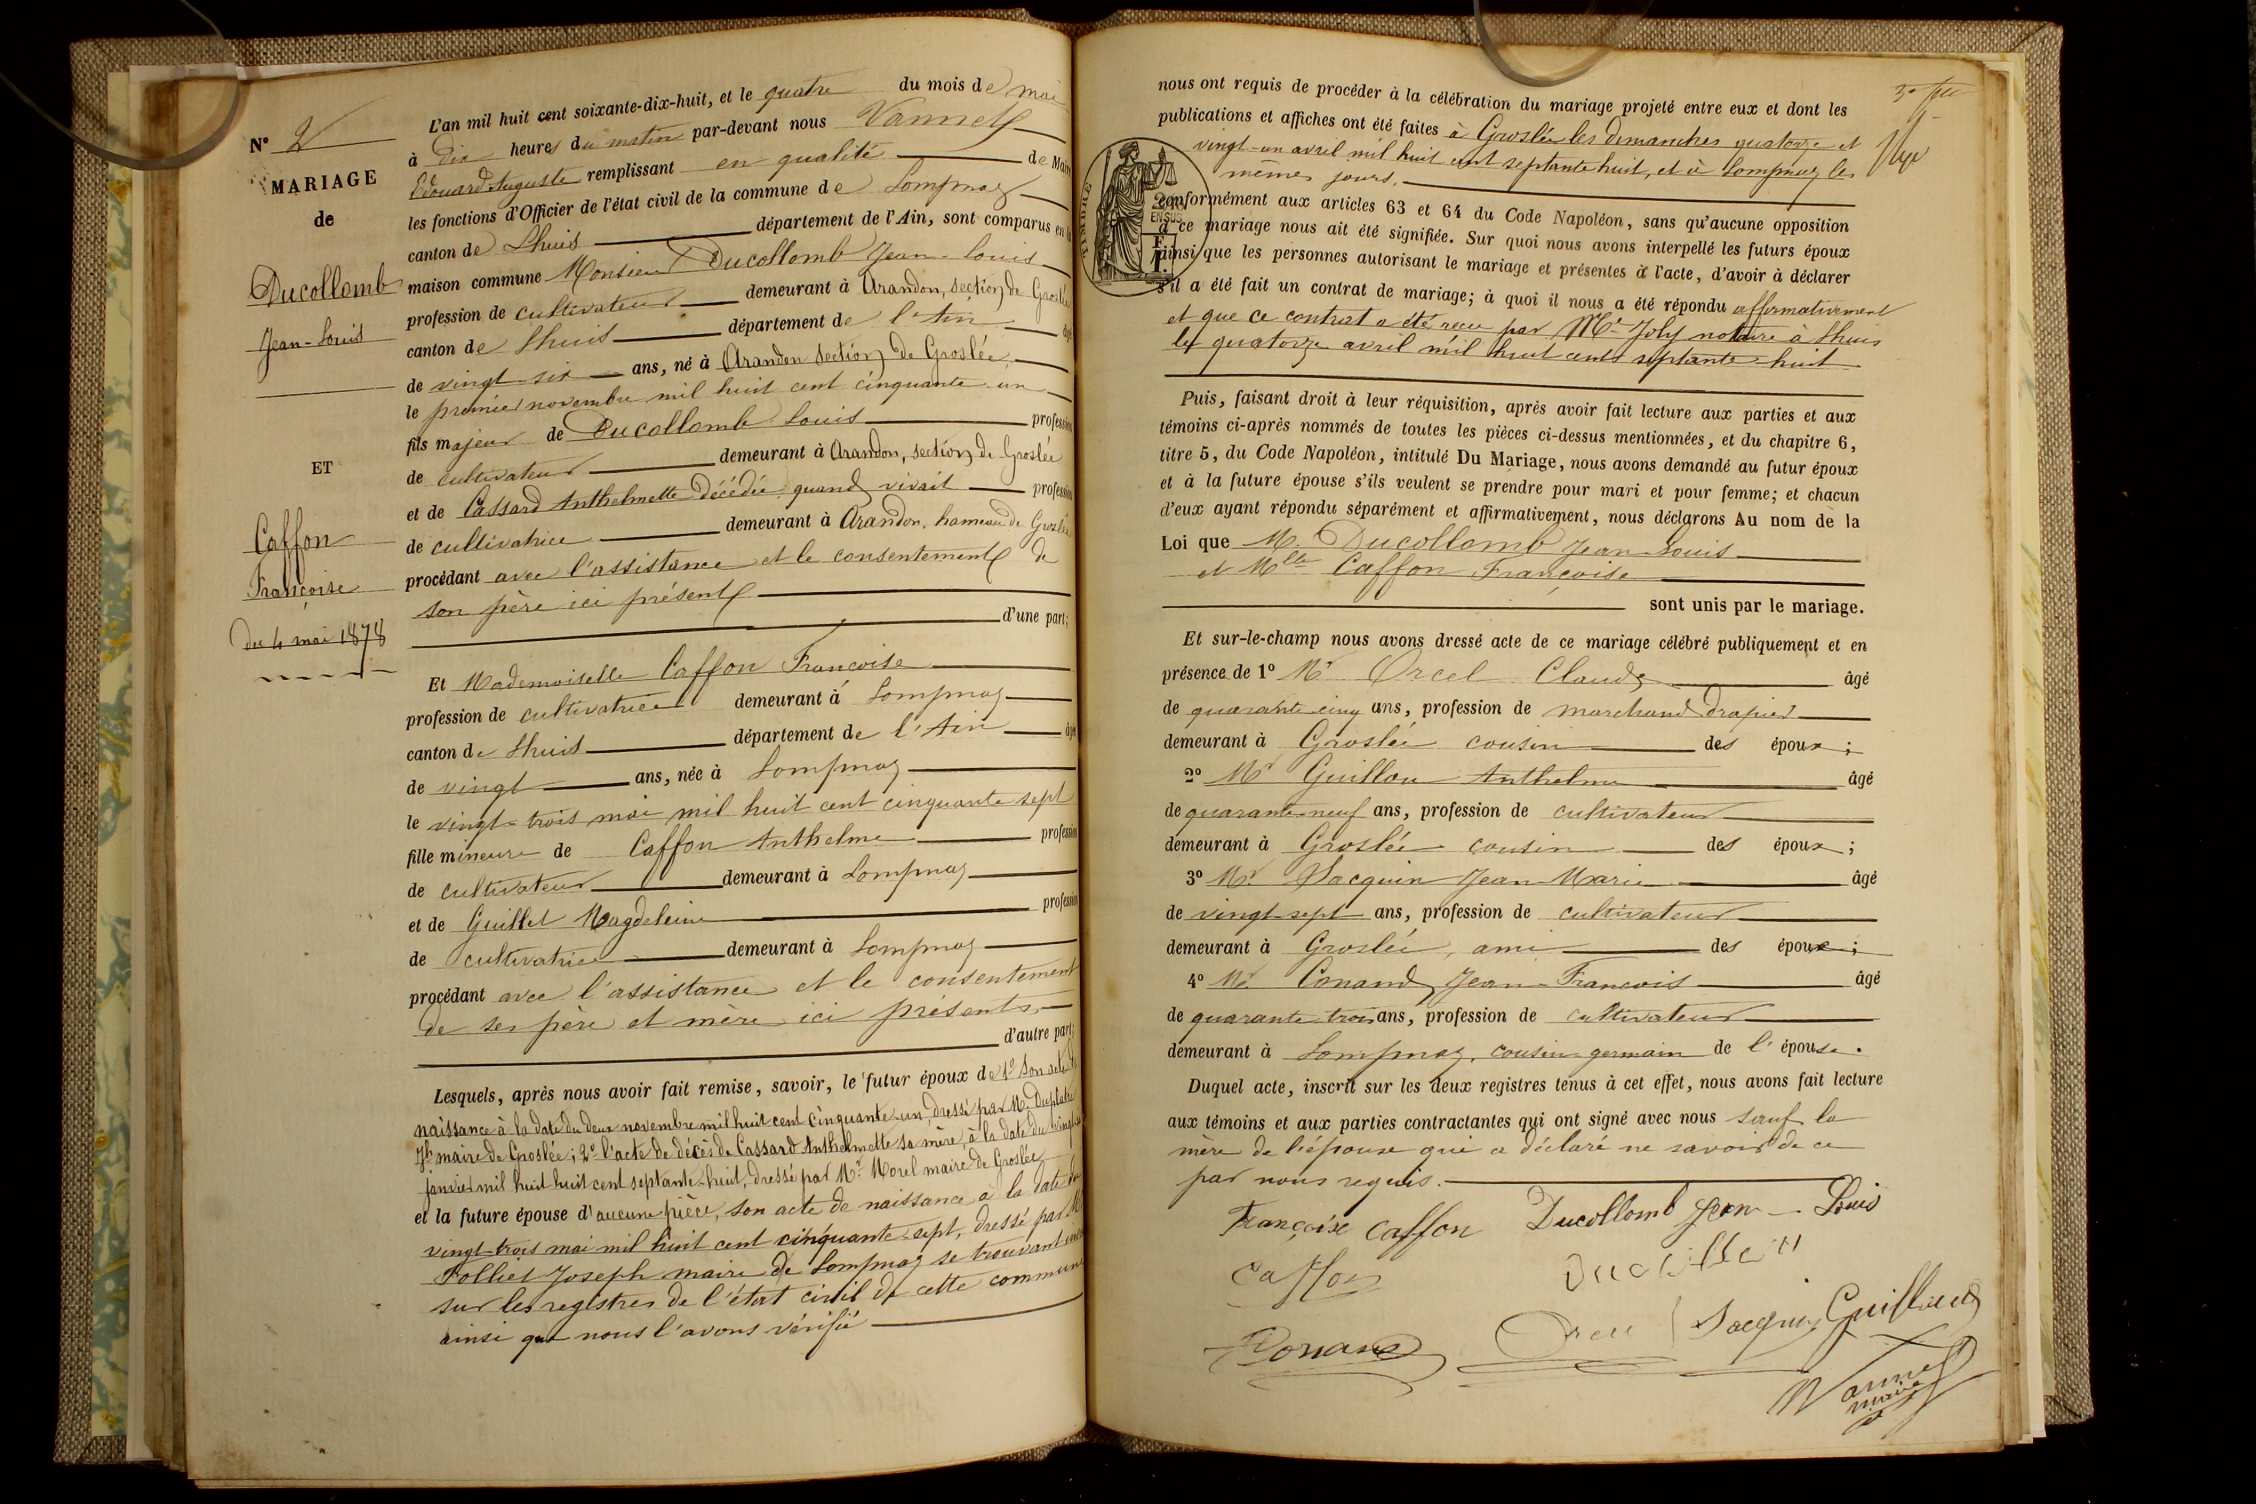 N° 2
MARIAGE
de
Ducollomb
Jean-Louis
ET
Caffon
Françoise
du 4 mai 1878
L'an mil huit cent soixante-dix-huit, et le quatre du mois de mai
à dix heures du matin par-devant nous Vannet
Edouard Auguste remplissant en qualité de Maire
les fonctions d'Officier de l'état civil de la commune de Lompnaz
canton de Lhuis département de l'Ain, sont comparus en la
maison commune Monsieur Ducollomb Jean-Louis
profession de cultivateur demeurant à Arandon, section de Groslée
canton de Lhuis département de l'Ain âgé
de vingt-six ans, né à Arandon section de Groslée
le premier novembre mil huit cent cinquante-un
fils majeur de Ducollomb Louis profession
de cultivateur demeurant à Arandon, section de Groslée
et de Cassard Anthelmette décédée quand vivait profession
de cultivatrice demeurant à Arandon, hameau de Groslée
procédant avec l'assistance et le consentement de
son père ici présent
d'une part;
Et Mademoiselle Caffon Françoise
profession de cultivatrice demeurant à Lompnaz
canton de Lhuis département de l'Ain âgée
de vingt ans, née à Lompnaz
le vingt-trois mai mil huit cent cinquante sept
fille mineure de Caffon Anthelme profession
de cultivateur demeurant à Lompnaz
et de Guillet Magdeleine profession
de cultivatrice demeurant à Lompnaz
procédant avec l'assistance et le consentement
de ses père et mère ici présents
d'autre part;
Lesquels, après nous avoir fait remise, savoir, le futur époux de 1° Son acte de
naissance à la date du deux novembre mil huit cent cinquante-un, dressé par M.
maire de Groslée; 2° l'acte de décès de Cassard Anthelmette sa mère, à la date du
janvier mil huit huit cent septante-huit, dressé par Mr. Morel maire de Groslée
et la future épouse d'aucune pièce, son acte de naissance à la date du
vingt-trois mai mil huit cent cinquante-sept, dressé par Mr
Folliet Joseph maire de Lompnaz se trouvant
sur les registres de l'état civil de cette commune
ainsi que nous l'avons vérifié
nous ont requis de procéder à la célébration du mariage projeté entre eux et dont les
publications et affiches ont été faites à Groslée les dimanches quatorze et
vingt-un avril mil huit cent septante huit, et à Lompnaz les
mêmes jours.
TIMBRE
conformément aux articles 63 et 64 du Code Napoléon, sans qu'aucune opposition
à ce mariage nous ait été signifiée. Sur quoi nous avons interpellé les futurs époux
ainsi que les personnes autorisant le mariage et présentes à l'acte, d'avoir à déclarer
s'il a été fait un contrat de mariage; à quoi il nous a été répondu affirmativement
et que ce contrat a été reçu par Me Joly notaire à Lhuis
le quatorze avril mil huit cents septante-huit
Puis, faisant droit à leur réquisition, après avoir fait lecture aux parties et aux
témoins ci-après nommés de toutes les pièces ci-dessus mentionnées, et du chapitre 6,
titre 5, du Code Napoléon, intitulé Du Mariage, nous avons demandé au futur époux
et à la future épouse s'ils veulent se prendre pour mari et pour femme; et chacun
d'eux ayant répondu séparément et affirmativement, nous déclarons Au nom de la
Loi que M. Ducollomb Jean-Louis
et Mlle Caffon Françoise
sont unis par le mariage.
Et sur-le-champ nous avons dressé acte de ce mariage célébré publiquement et en
présence de 1° Mr Orcel Claude âgé
de quarante cinq ans, profession de marchand drapier
demeurant à Groslée cousin des époux;
2° Mr Guillon Anthelme âgé
de quarante-neuf ans, profession de cultivateur
demeurant à Groslée cousin des époux;
3° Mr. Sacquin Jean Marie âgé
de vingt-sept ans, profession de cultivateur
demeurant à Groslée, ami des époux;
4° Mr. Conand Jean-François âgé
de quarante-trois ans, profession de cultivateur
demeurant à Lompnaz, cousin-germain de l'épouse.
Duquel acte, inscrit sur les deux registres tenus à cet effet, nous avons fait lecture
aux témoins et aux parties contractantes qui ont signé avec nous sauf la
mère de l'épouse qui a déclaré ne savoir de ce
par nous requis.
Françoise Caffon Ducollomb Jean-Louis
Caffon
Conand Orcel Sacquin Guilland
Vannet
maire